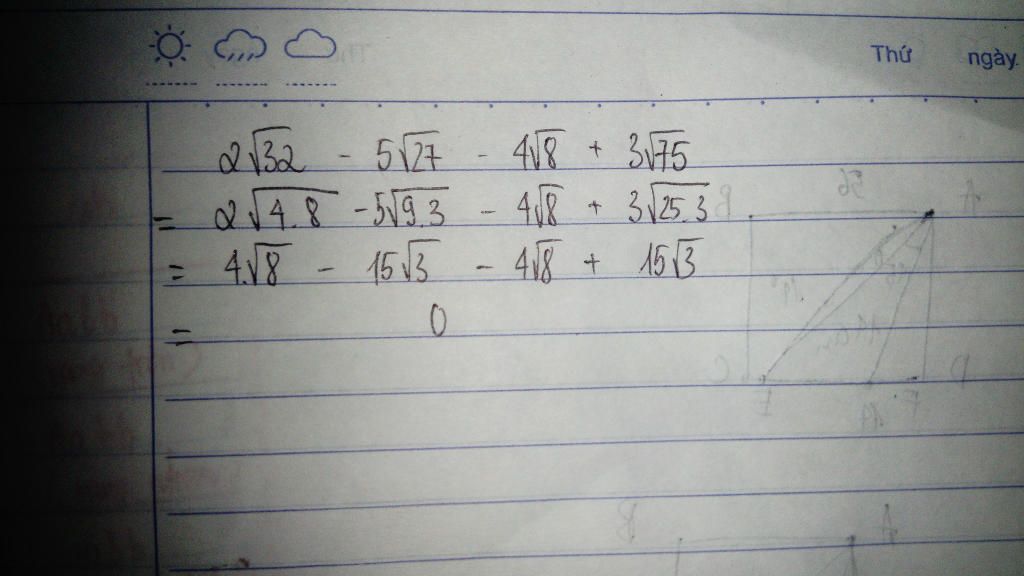 Thứ ngày.
2√32 - 5√27 - 4√8 + 3√75
= 2√4.8 - 5√9.3 - 4√8 + 3√25.3
= 4.√8 - 15√3 - 4√8 + 15√3
= 0